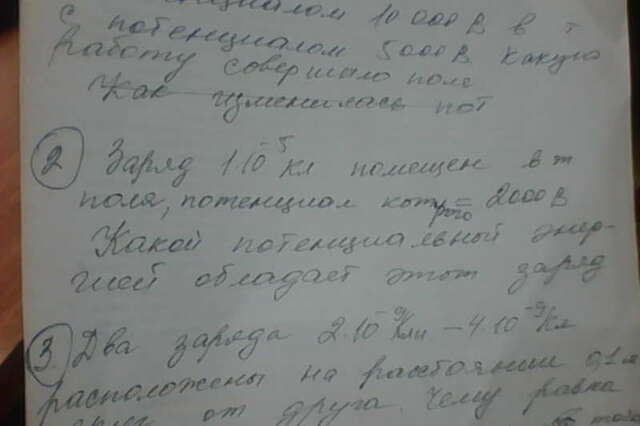 потенциалом 10 000 В в т
с потенциалом 5000 В какую
работу совершило поле
Как изменилась пот
2 Заряд 1·10⁻⁵ Кл помещен в т
поля, потенциал которого = 2000 В
Какой потенциальный энер-
гией обладает этот заряд
3. Два заряда 2·10⁻⁹ Кл и –4·10⁻⁹ Кл
расположены на расстоянии 0,1 м
друг от друга. Чему равна